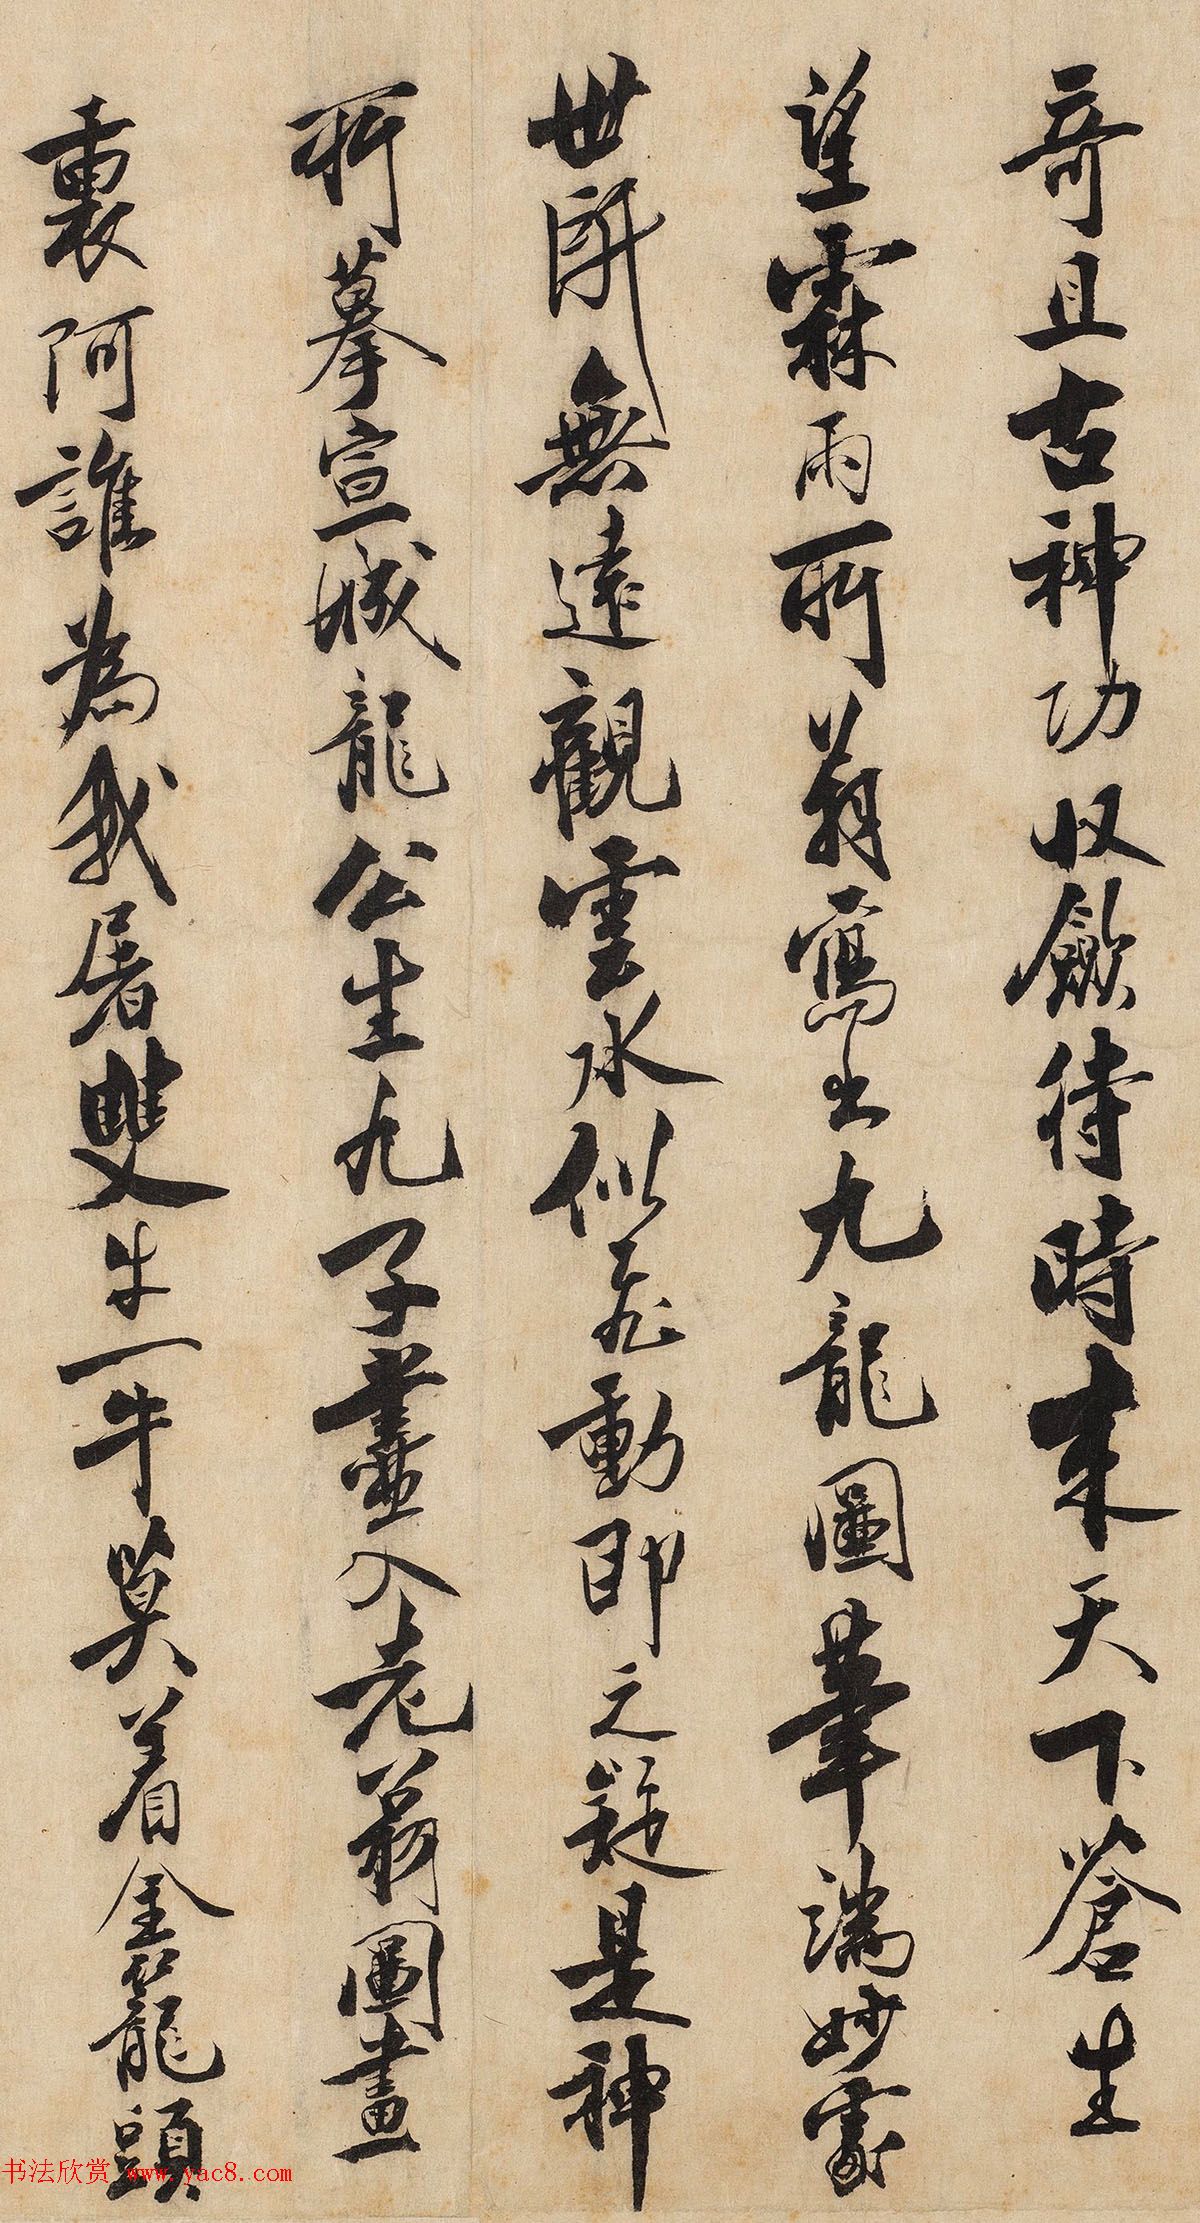 奇且古神功収斂待時來天下蒼生
望霖雨所翁寫出九龍圖筆端妙處
世所無遠觀雲水似飛動即之疑是神
所摹宣城龍公生九子盡入老翁圖畫
裏阿誰為我屠雙牛一牛莫着金籠頭
书法欣赏 www.yac8.com